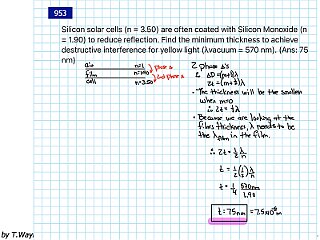 953
Silicon solar cells (n = 3.50) are often coated with Silicon Monoxide (n
= 1.90) to reduce reflection. Find the minimum thickness to achieve
destructive interference for yellow light (λvacuum = 570 nm). (Ans: 75
nm)
air n=1
film n=1.90
cell n=3.50
2 phase Δ's
∴ ΔD=(m+½)λ
2t=(m+½)λ
• The thickness will be the smallest
when m=0
∴ 2t=½λ
• Because we are looking at the
films thickness, λ needs to be
the λfilm in the film.
∴ 2t=½ λ/n
t=½(½)λ/n
t=¼ 570nm/1.90
t=75nm =7.5x10⁻⁸m
by T.Way.